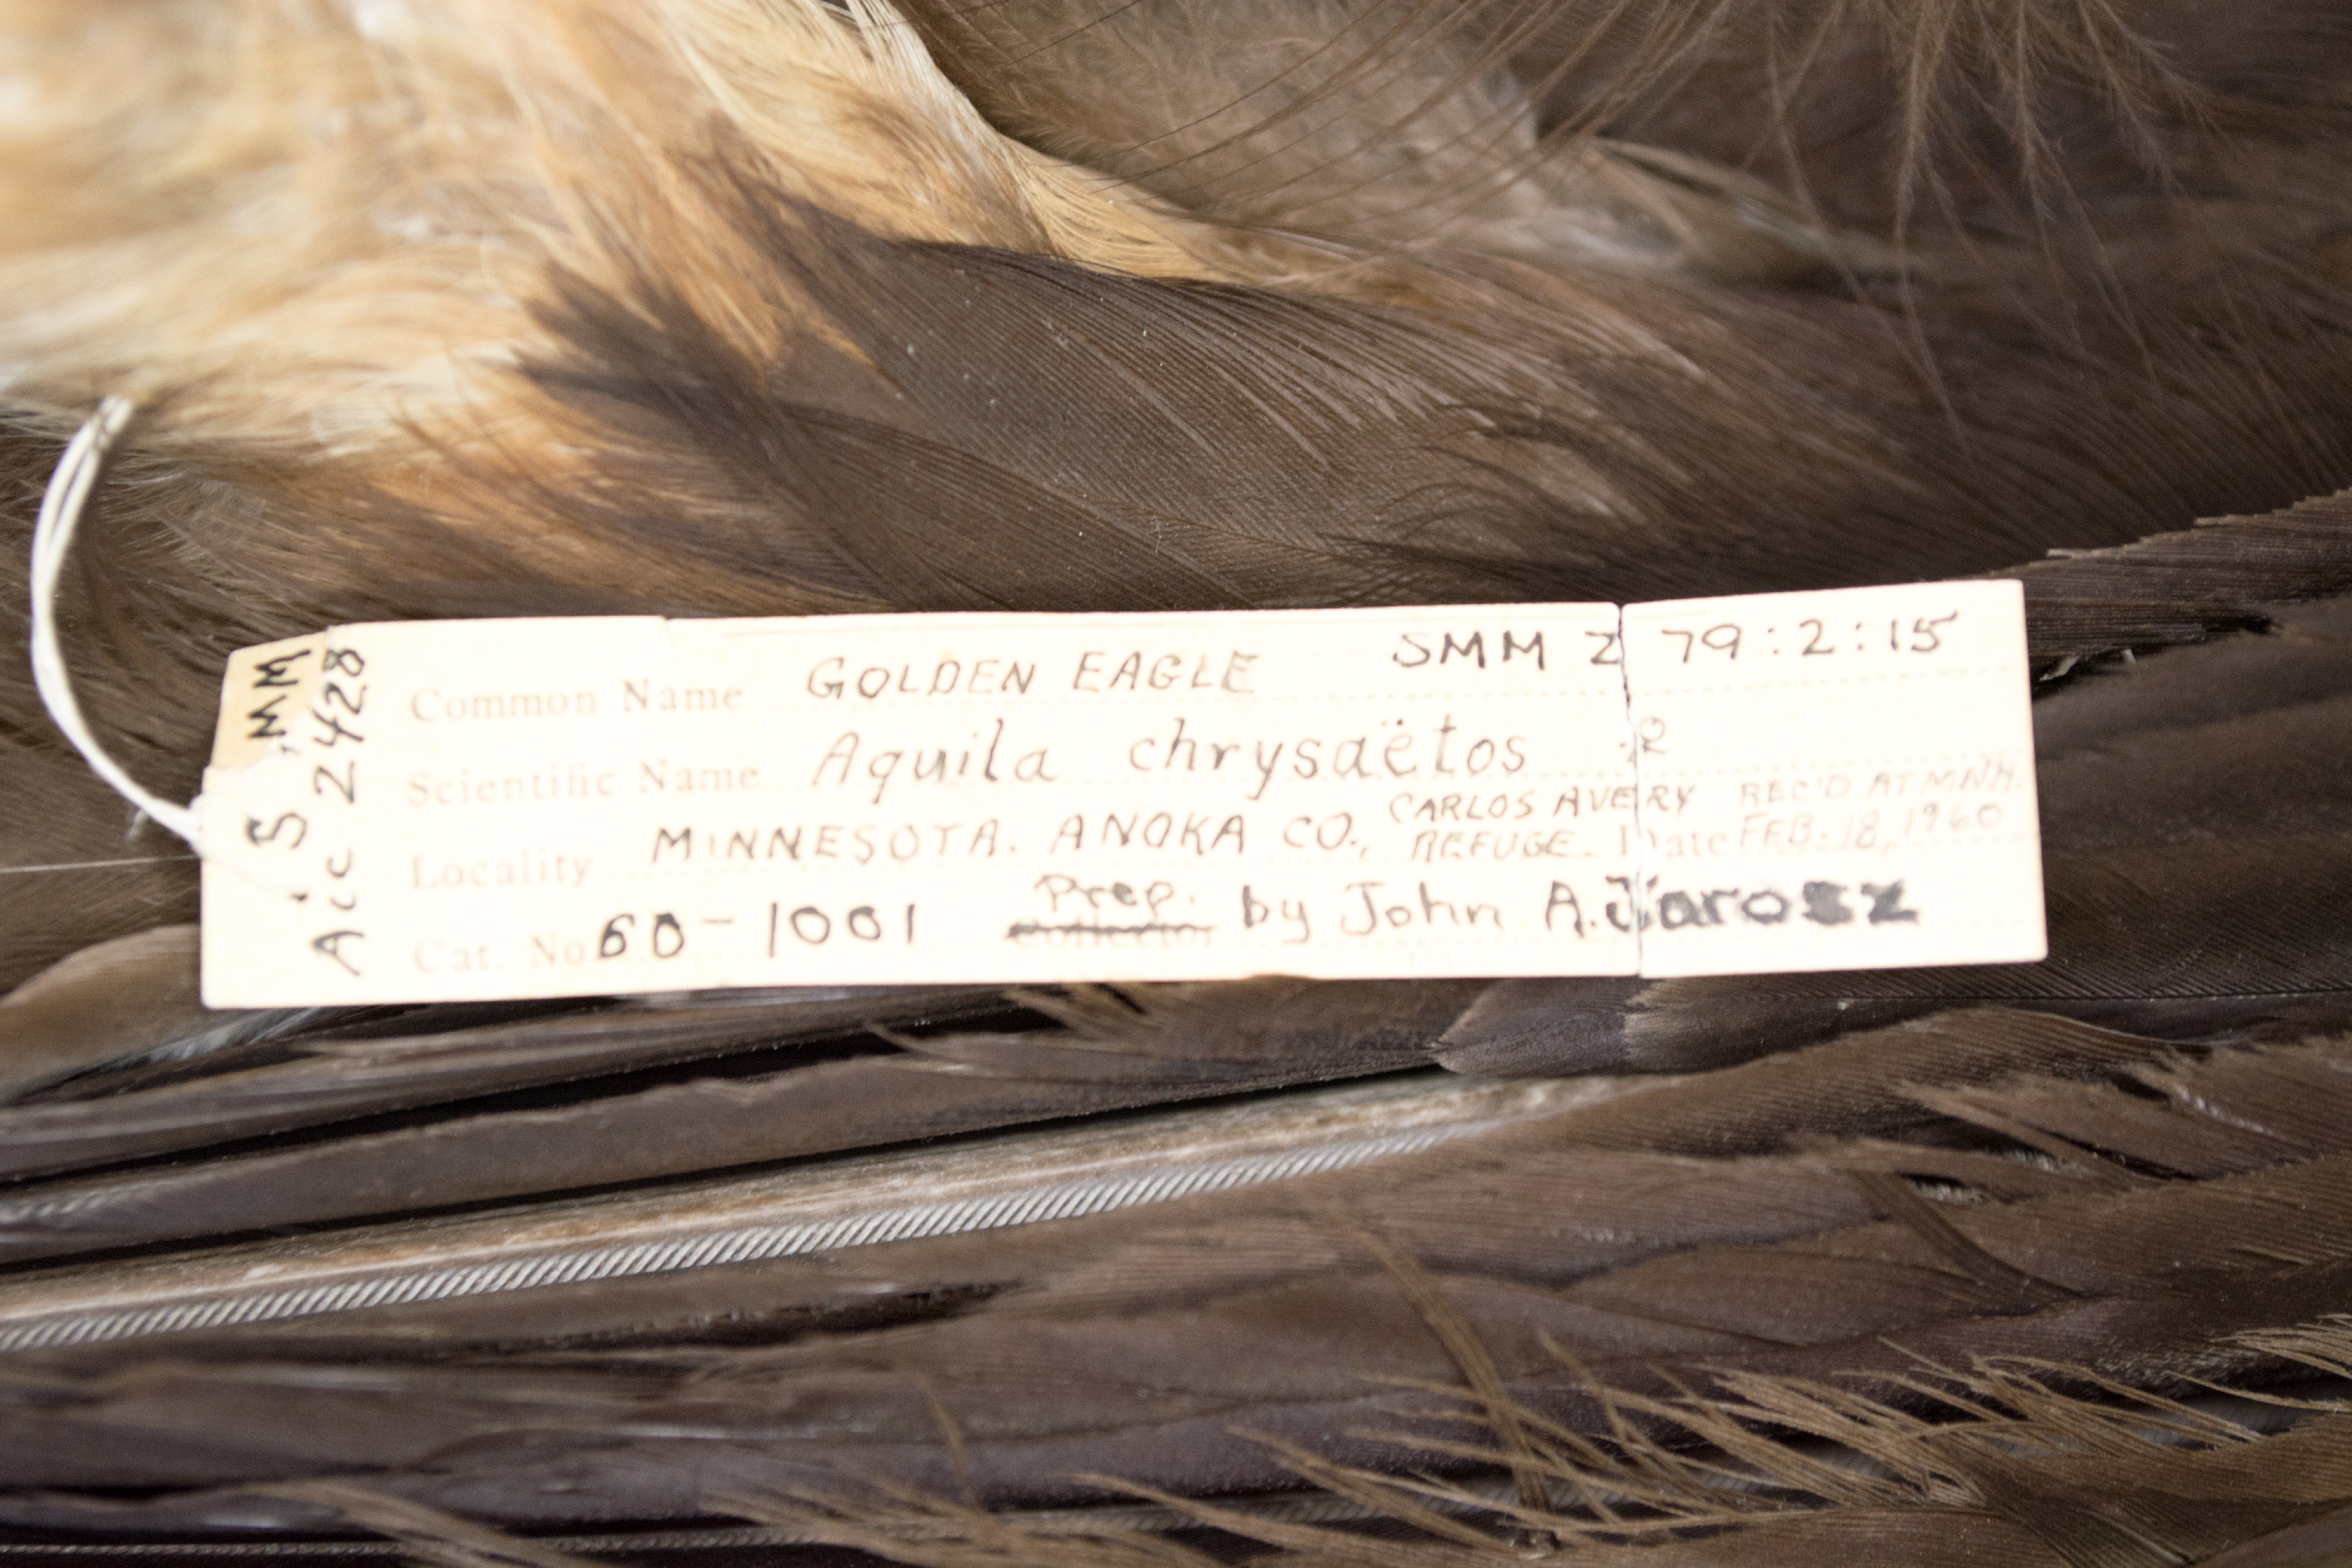 SMM
Acc 2428
Common Name GOLDEN EAGLE SMM Z 79:2:15
Scientific Name Aquila chrysaëtos ♀
CARLOS AVERY REC'D AT M.N.H.
Locality MINNESOTA. ANOKA CO., REFUGE. Date FEB. 18, 1960
Prep.
Cat. No. 60-1001 Collector by John A. Jarosz